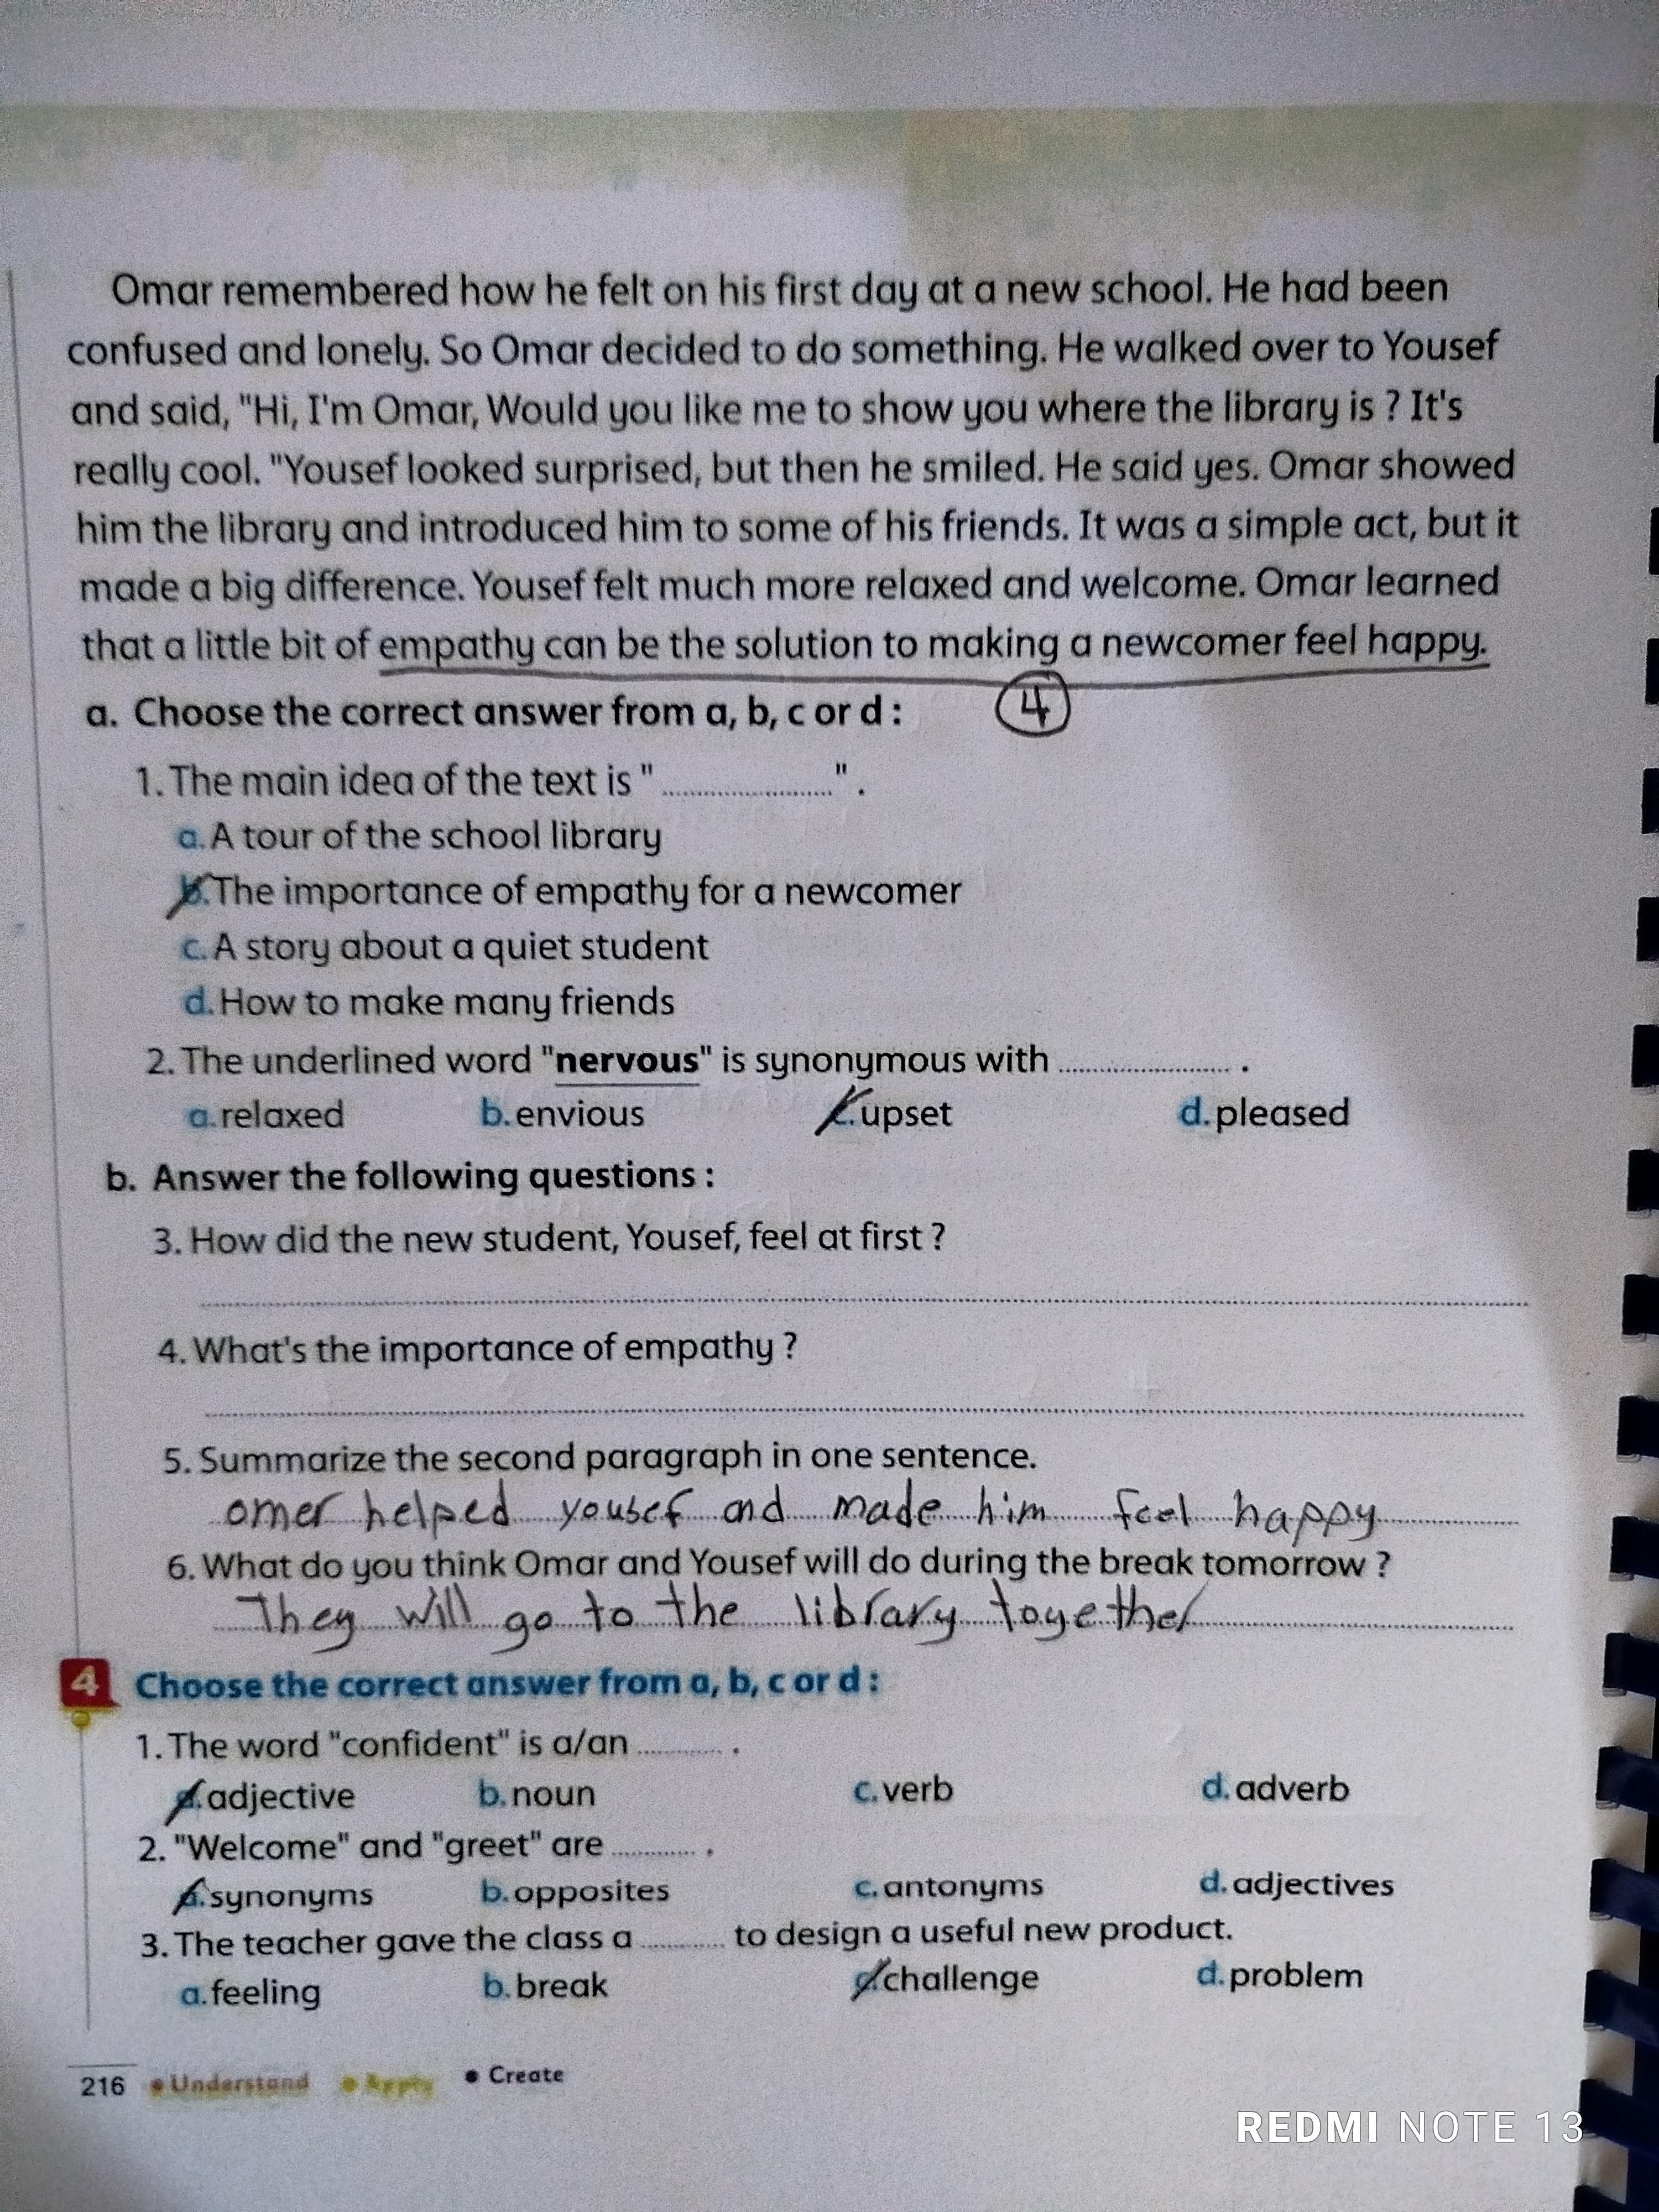 Omar remembered how he felt on his first day at a new school. He had been
confused and lonely. So Omar decided to do something. He walked over to Yousef
and said, "Hi, I'm Omar, Would you like me to show you where the library is ? It's
really cool. "Yousef looked surprised, but then he smiled. He said yes. Omar showed
him the library and introduced him to some of his friends. It was a simple act, but it
made a big difference. Yousef felt much more relaxed and welcome. Omar learned
that a little bit of empathy can be the solution to making a newcomer feel happy.
a. Choose the correct answer from a, b, c or d : 4
1. The main idea of the text is "....................." .
a. A tour of the school library
b. The importance of empathy for a newcomer
c. A story about a quiet student
d. How to make many friends
2. The underlined word "nervous" is synonymous with ..................... .
a. relaxed b. envious c. upset d. pleased
b. Answer the following questions :
3. How did the new student, Yousef, feel at first ?
4. What's the importance of empathy ?
5. Summarize the second paragraph in one sentence.
omer helped yousef and made him feel happy
6. What do you think Omar and Yousef will do during the break tomorrow ?
They will go to the library together
4 Choose the correct answer from a, b, c or d :
1. The word "confident" is a/an ........... .
a. adjective b. noun c. verb d. adverb
2. "Welcome" and "greet" are ........... .
a. synonyms b. opposites c. antonyms d. adjectives
3. The teacher gave the class a ........... to design a useful new product.
a. feeling b. break c. challenge d. problem
216 • Understand • Apply • Create
REDMI NOTE 13